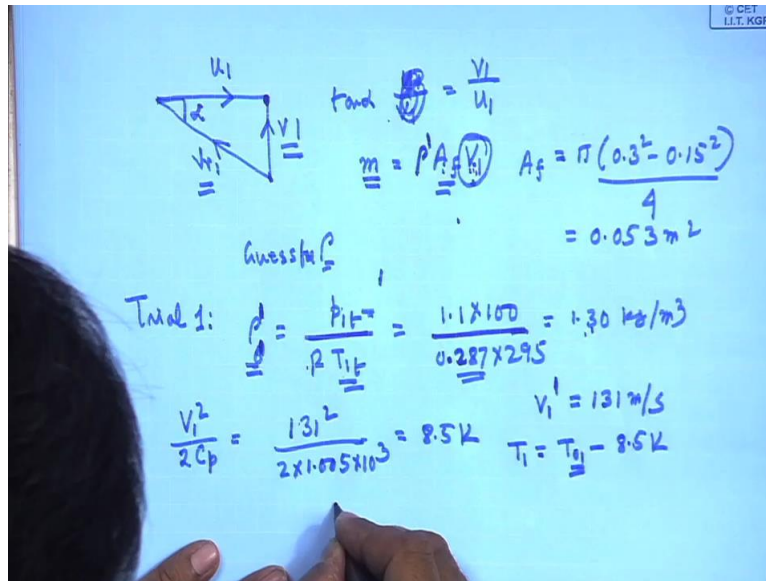 © CET
I.I.T. KGP
U1
α
V1
Vr1
tanα = V1 / U1
m = ρ' Af V1'
Af = π (0.3² - 0.15²) / 4
= 0.053 m²
Guess for ρ
Trial 1: ρ' = p1t / R T1t = 1.1×100 / 0.287×295 = 1.30 kg/m3
V1' = 131 m/s
V1² / 2Cp = 131² / 2×1.005×10³ = 8.5K
T1 = T01 - 8.5K